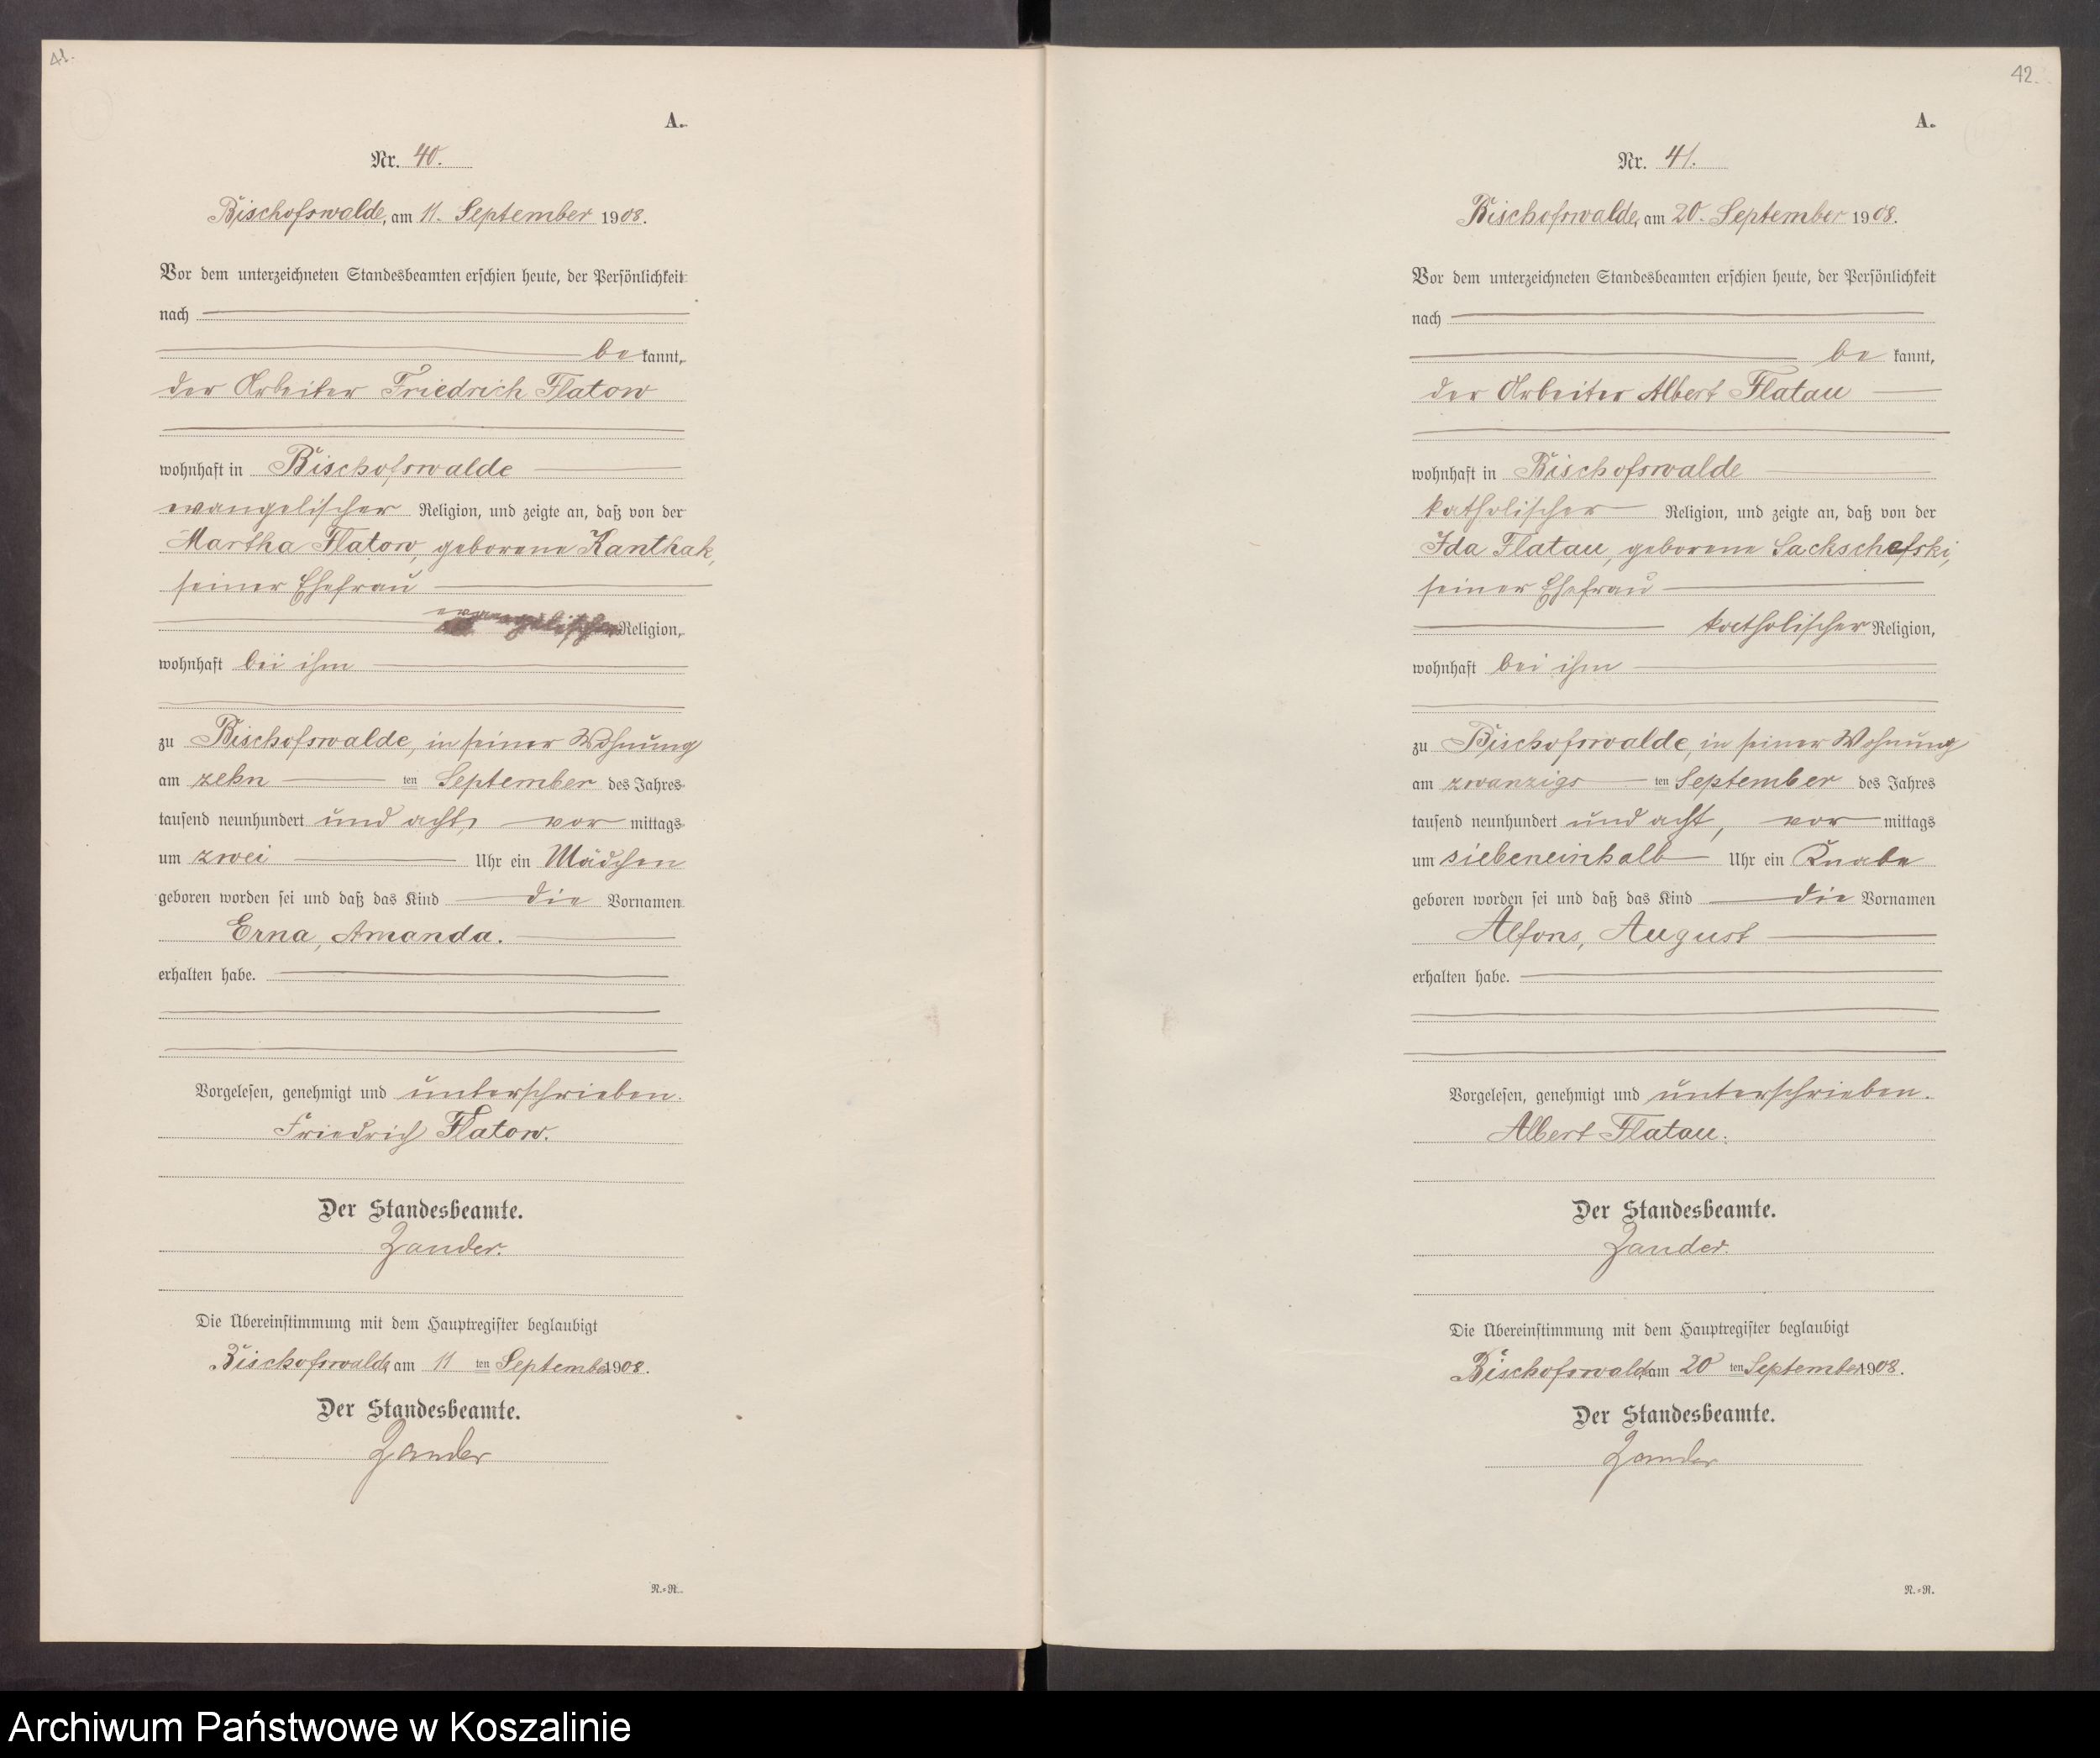 41.
A.
Nr. 40.
Bischofswalde, am 11. September 1908.
Vor dem unterzeichneten Standesbeamten erschien heute, der Persönlichkeit
nach
be kannt,
der Arbeiter Friedrich Flatow
wohnhaft in Bischofswalde
evangelischer Religion, und zeigte an, daß von der
Martha Flatow, geborene Kanthak,
seiner Ehefrau
evangelischer Religion,
wohnhaft bei ihm
zu Bischofswalde, in seiner Wohnung
am zehn ten September des Jahres
tausend neunhundert und acht, vor mittags
um zwei Uhr ein Mädchen
geboren worden sei und daß das Kind die Vornamen
Erna, Amanda.
erhalten habe.
Vorgelesen, genehmigt und unterschrieben.
Friedrich Flatow.
Der Standesbeamte.
Zander.
Die Übereinstimmung mit dem Hauptregister beglaubigt
Bischofswalde am 11 ten September 1908.
Der Standesbeamte.
Zander
N.=R.
42.
A.
Nr. 41.
Bischofswalde, am 20. September 1908.
Vor dem unterzeichneten Standesbeamten erschien heute, der Persönlichkeit
nach
be kannt,
der Arbeiter Albert Flatau
wohnhaft in Bischofswalde
katholischer Religion, und zeigte an, daß von der
Ida Flatau, geborene Sackschefski,
seiner Ehefrau
katholischer Religion,
wohnhaft bei ihm
zu Bischofswalde, in seiner Wohnung
am zwanzigs ten September des Jahres
tausend neunhundert und acht, vor mittags
um siebeneinhalb Uhr ein Knabe
geboren worden sei und daß das Kind die Vornamen
Alfons, August
erhalten habe.
Vorgelesen, genehmigt und unterschrieben.
Albert Flatau.
Der Standesbeamte.
Zander.
Die Übereinstimmung mit dem Hauptregister beglaubigt
Bischofswalde am 20 ten September 1908.
Der Standesbeamte.
Zander
N.=R.
Archiwum Państwowe w Koszalinie